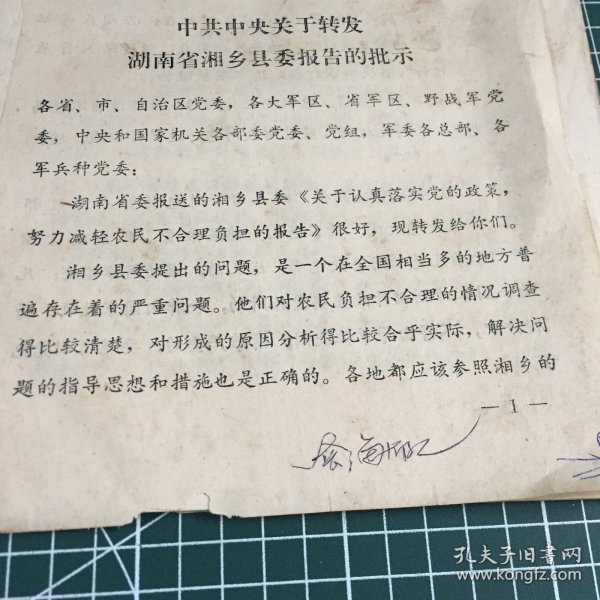 中共中央关于转发
湖南省湘乡县委报告的批示
各省、市、自治区党委，各大军区、省军区、野战军党
委，中央和国家机关各部委党委、党组，军委各总部、各
军兵种党委：
湖南省委报送的湘乡县委《关于认真落实党的政策，
努力减轻农民不合理负担的报告》很好，现转发给你们。
湘乡县委提出的问题，是一个在全国相当多的地方普
遍存在着的严重问题。他们对农民负担不合理的情况调查
得比较清楚，对形成的原因分析得比较合乎实际，解决问
题的指导思想和措施也是正确的。各地都应该参照湘乡的
— 1 —
孔夫子旧书网
www.kongfz.com